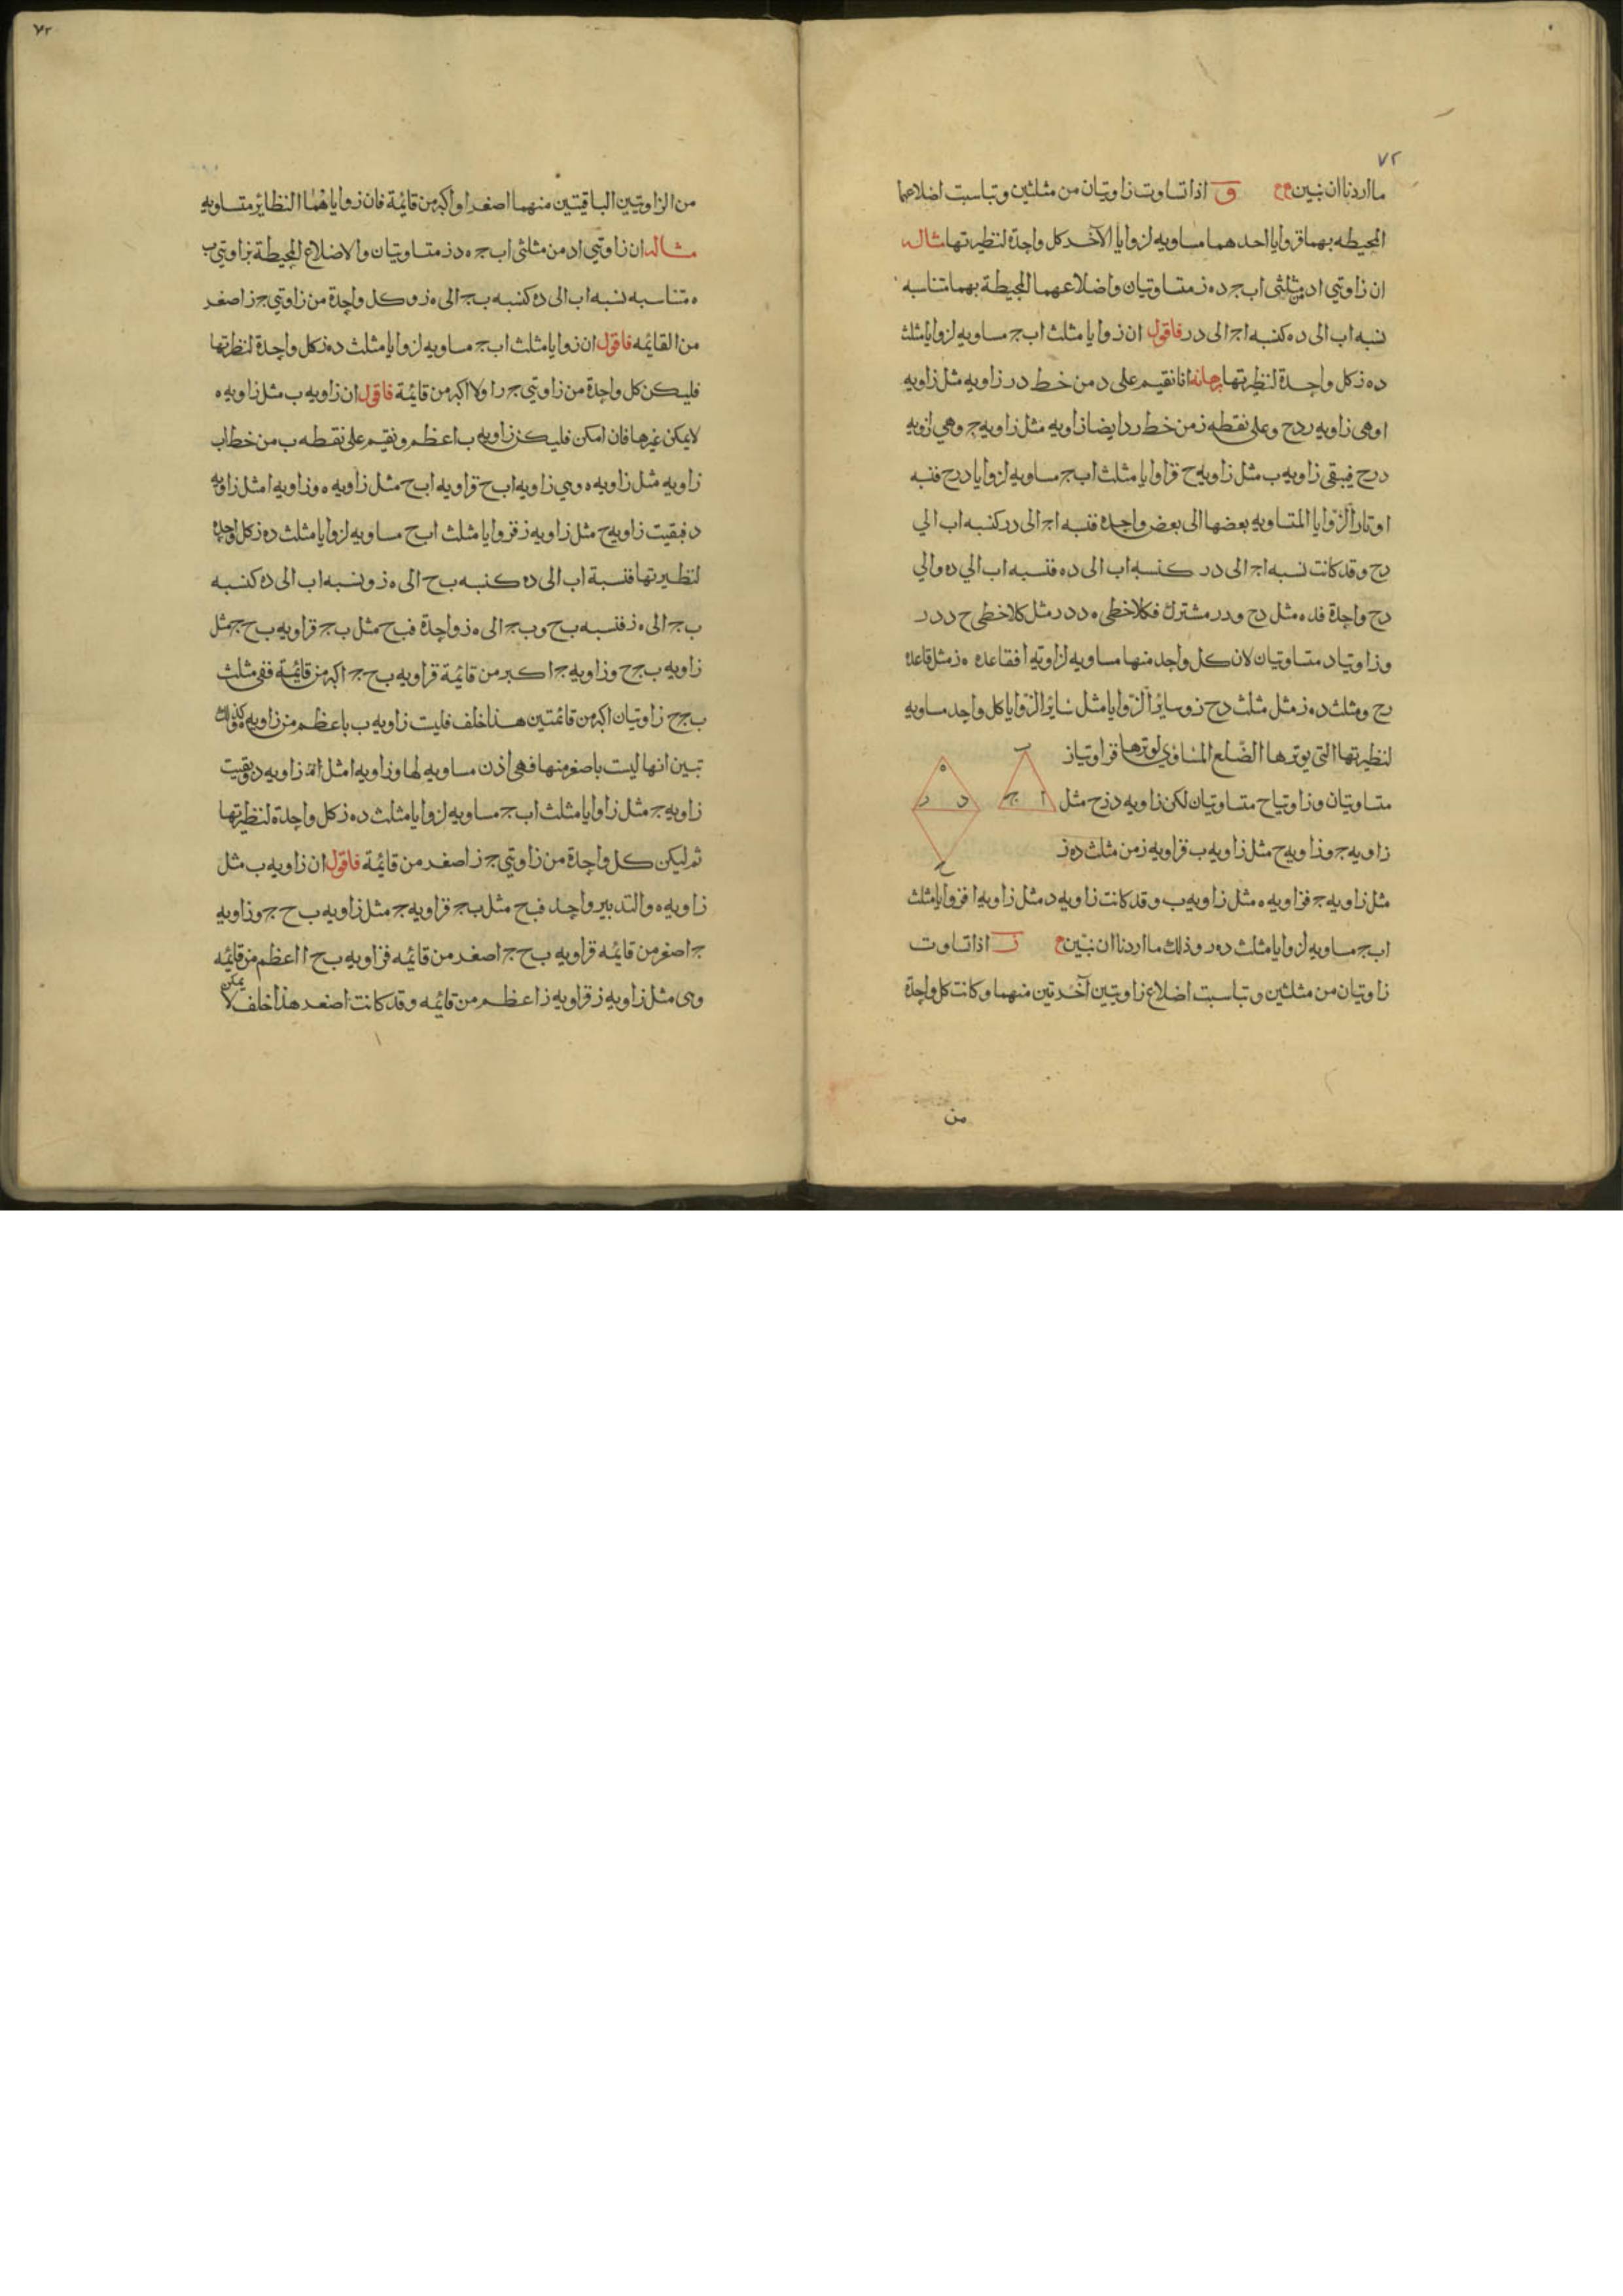 ٧٢
ما اردنا ان نبين و اذا تساوت زاويتان من مثلثين وتناسبت اضلاعهما
المحيطه بهما فزوايا احدهما مساويه لزوايا الآخر كل واحدة لنظيرتها مثاله
ان زاويتي ا د من مثلثى ا ب ج د ه ز متساويتان واضلاعهما المحيطة بهما متناسبه
نسبه ا ب الى د ه كنسبه ا ج الى د ر فاقول ان زوايا مثلث ا ب ج مساويه لزوايا مثلث
د ه ز كل واحدة لنظيرتها برهانه انا نقيم على د من خط د ر زاويه مثل زاويه
ا وهى زاويه ر د ح وعلى نقطه ز من خط ر د ايضا زاويه مثل زاويه ج وهي زاويه
د ر ح فيبقى زاويه ب مثل زاويه ح فزاوايا مثلث ا ب ج مساويه لزوايا د ر ح فنسبه
اوتار الزوايا المتساويه بعضها الى بعض واحدة فنسبه ا ج الى د ر كنسبه ا ب الي
د ح وقد كانت نسبه ا ج الى د ر كنسبه ا ب الى د ه فنسبه ا ب الي د ه والي
د ح واحدة فد ه مثل د ح و د ر مشترك فكلا خطى ه د د ر مثل كلا خطى ح د د ر
وزاويتا د متساويتان لان كل واحد منها مساويه لزاويه ا فقاعده ه ز مثل قاعده
ر ح ومثلث د ه ز مثل مثلث د ح ز وساير الزوايا مثل ساير الزوايا كل واحد مساويه
لنظيرتها التى يوترها الضلع المساوي لوترها فزاويتا ز
متساويتان وزاويتا ح متساويتان لكن زاويه د ز ح مثل
زاويه ج وزاويه ح مثل زاويه ب فزاويه ز من مثلث د ه ز
مثل زاويه ج فزاويه ه مثل زاويه ب وقد كانت زاويه د مثل زاويه ا فزوايا مثلث
ا ب ج مساويه لزوايا مثلث د ه ر وذلك ما اردنا ان نبين ز اذا تساوت
زاويتان من مثلثين وتناسبت اضلاع زاويتين آخرتين منهما وكانت كل واحدة
من
ب
ا
ج
ه
د
ر
ح
٧٢
من الزاويتين الباقيتين منهما اصغر او اكبر من قائمة فان زواياهما النظائر متساويه
مثاله ان زاويتي ا د من مثلثى ا ب ج ه د ز متساويتان والاضلاع المحيطة بزاويتي ب
ه متناسبه نسبه ا ب الى د ه كنسبه ب ج الى ه ز وكل واحدة من زاويتي ج ز اصغر
من القائمه فاقول ان زوايا مثلث ا ب ج مساويه لزوايا مثلث د ه ز كل واحدة لنظيرتها
فليكن كل واحدة من زاويتي ج ر اولا اكبر من قائمة فاقول ان زاويه ب مثل زاويه ه
لا يمكن غيرها فان امكن فليكن زاويه ب اعظم ونقيم على نقطه ب من خط ا ب
زاويه مثل زاويه ه وهي زاويه ا ب ح فزاويه ا ب ح مثل زاويه ه وزاويه ا مثل زاويه
د فبقيت زاويه ح مثل زاويه ز فزوايا مثلث ا ب ح مساويه لزوايا مثلث د ه ز كل واحدة
لنظيرتها فنسبة ا ب الى د ه كنسبه ب ح الى ه ز ونسبه ا ب الى د ه كنسبه
ب ج الى ه ز فنسبه ب ح و ب ج الى ه ز واحدة فب ح مثل ب ج فزاويه ب ح ج مثل
زاويه ب ج ح وزاويه ج اكبر من قائمة فزاويه ب ح ج اكبر من قائمة ففى مثلث
ب ج ح زاويتان اكبر من قائمتين هذا خلف فليست زاويه ب باعظم من زاويه ه وكذلك
تبين انها ليست باصغر منها فهى اذن مساويه لها وزاويه ا مثل زاويه د وبقيت
زاويه ج مثل ز فزاوايا مثلث ا ب ج مساويه لزوايا مثلث د ه ز كل واحدة لنظيرتها
ثم ليكن كل واحدة من زاويتي ج ز اصغر من قائمة فاقول ان زاويه ب مثل
زاويه ه والتدبير واحد فب ح مثل ب ج فزاويه ج مثل زاويه ب ح ج وزاويه
ج اصغر من قائمه فزاويه ب ح ج اصغر من قائمه فزاويه ب ح ا اعظم من قائمه
وهى مثل زاويه ز فزاويه ز اعظم من قائمه وقد كانت اصغر هذا خلف لا يمكن